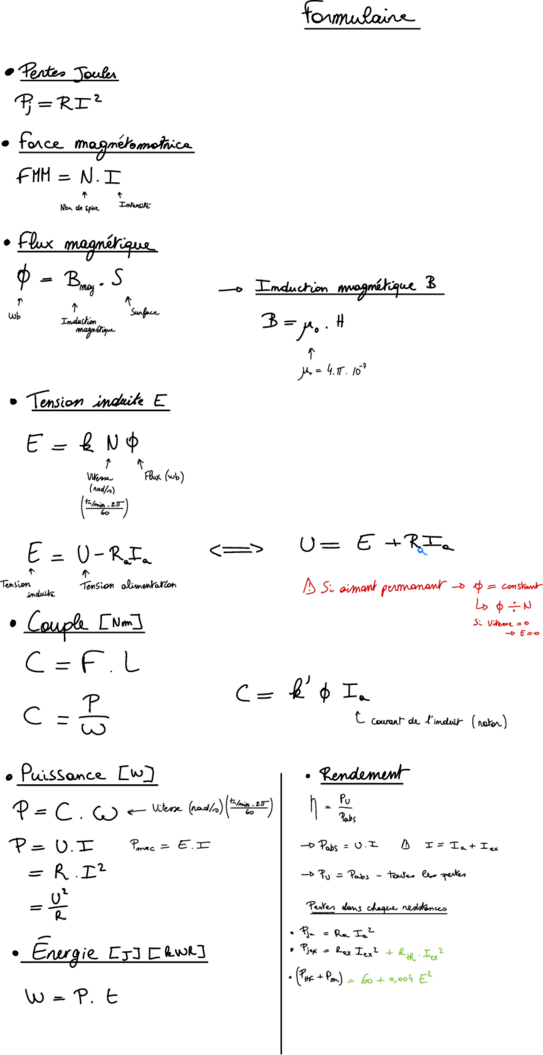 Formulaire
• Pertes Joules
Pj = RI²
• Force magnétomotrice
FMM = N . I
↑ Nbre de spire
↑ Intensité
• Flux magnétique
ϕ = Bmag . S
↑ Wb
↑ Induction magnétique
↑ Surface
→ Induction magnétique B
B = μ₀ . H
↑
μ₀ = 4.π.10⁻⁷
• Tension induite E
E = k N ϕ
↑ Vitesse (rad/s) (tr/min . 2π / 60)
↑ Flux (Wb)
E = U - RaIa <=> U = E + RaIa
↑ Tension induite
↑ Tension alimentation
⚠ Si aimant permanent → ϕ = constant
↳ ϕ ÷ N
Si Vitesse = 0
→ E = 0
• Couple [Nm]
C = F . L
C = P / ω
C = k' ϕ Ia
courant de l'induit (rotor)
• Puissance [W]
P = C . ω ← Vitesse (rad/s) (tr/min . 2π / 60)
P = U . I
Pmec = E . I
= R . I²
= U² / R
• Énergie [J] [kWh]
W = P . t
• Rendement
η = PU / Pabs
→ Pabs = U . I ⚠ I = Ia + Iex
→ PU = Pabs - toutes les pertes
Pertes dans chaque resistances
• Pja = Ra Ia²
• Pjex = Rex Iex² + Rrh . Iex²
• (PHF + Pm) = 60 + 0,004 E²